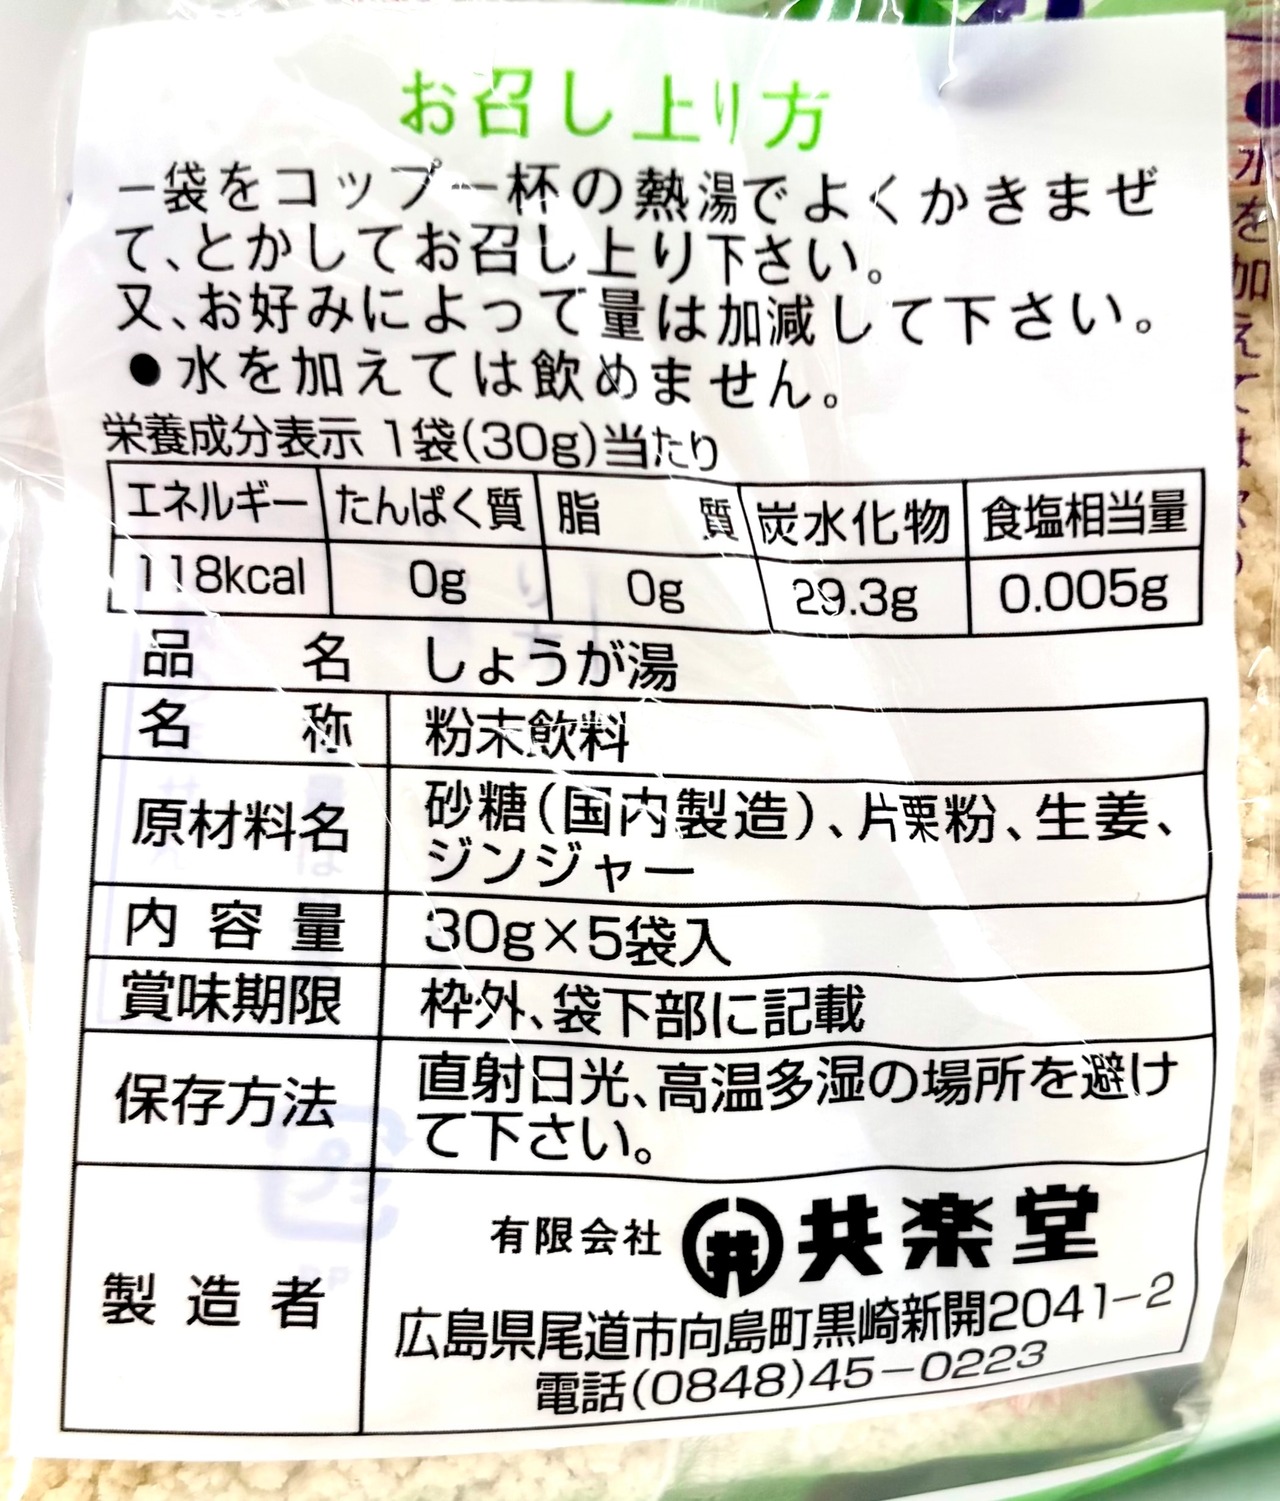 お召し上り方
一袋をコップ一杯の熱湯でよくかきまぜ
て、とかしてお召し上り下さい。
又、お好みによって量は加減して下さい。
●水を加えては飲めません。
栄養成分表示 1袋(30g)当たり
エネルギー たんぱく質 脂質 炭水化物 食塩相当量
118kcal 0g 0g 29.3g 0.005g
品名 しょうが湯
名称 粉末飲料
原材料名 砂糖(国内製造)、片栗粉、生姜、
ジンジャー
内容量 30g×5袋入
賞味期限 枠外、袋下部に記載
保存方法 直射日光、高温多湿の場所を避け
て下さい。
製造者 有限会社 共 共楽堂
広島県尾道市向島町黒崎新開2041-2
電話(0848)45-0223
水を加えては